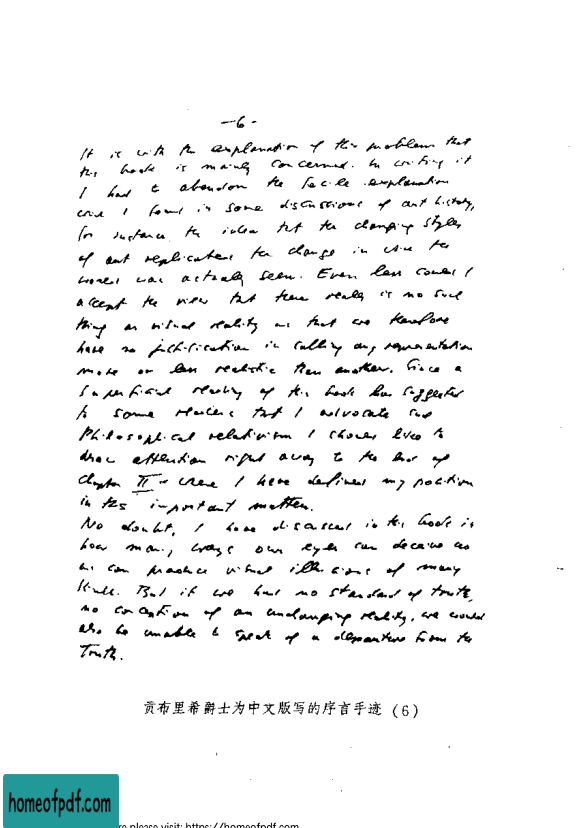 —6-
It is with the explanation of this problem that
this book is mainly concerned. In writing it
I had to abandon the facile explanation
I found in some discussions of art history,
for instance the idea that the changing styles
of art replicated the change in the
world was actually seen. Even less could I
accept the view that there really is no such
thing as visual reality and that we therefore
have no justification in calling any representation
more or less realistic than another. Since a
superficial reading of this book has suggested
to some readers that I advocate such
philosophical relativism I should like to
draw attention right away to the end of
Chapter II where I have defined my position
in this important matter.
No doubt, I have discussed in this book in
how many ways our eyes can deceive us
we can produce visual illusions of many
kinds. But if we had no standard of truth,
no conception of an unchanging reality, we would
also be unable to speak of a departure from the
Truth.
贡布里希爵士为中文版写的序言手迹 (6)
homeofpdf.com
re please visit: https://homeofpdf.com